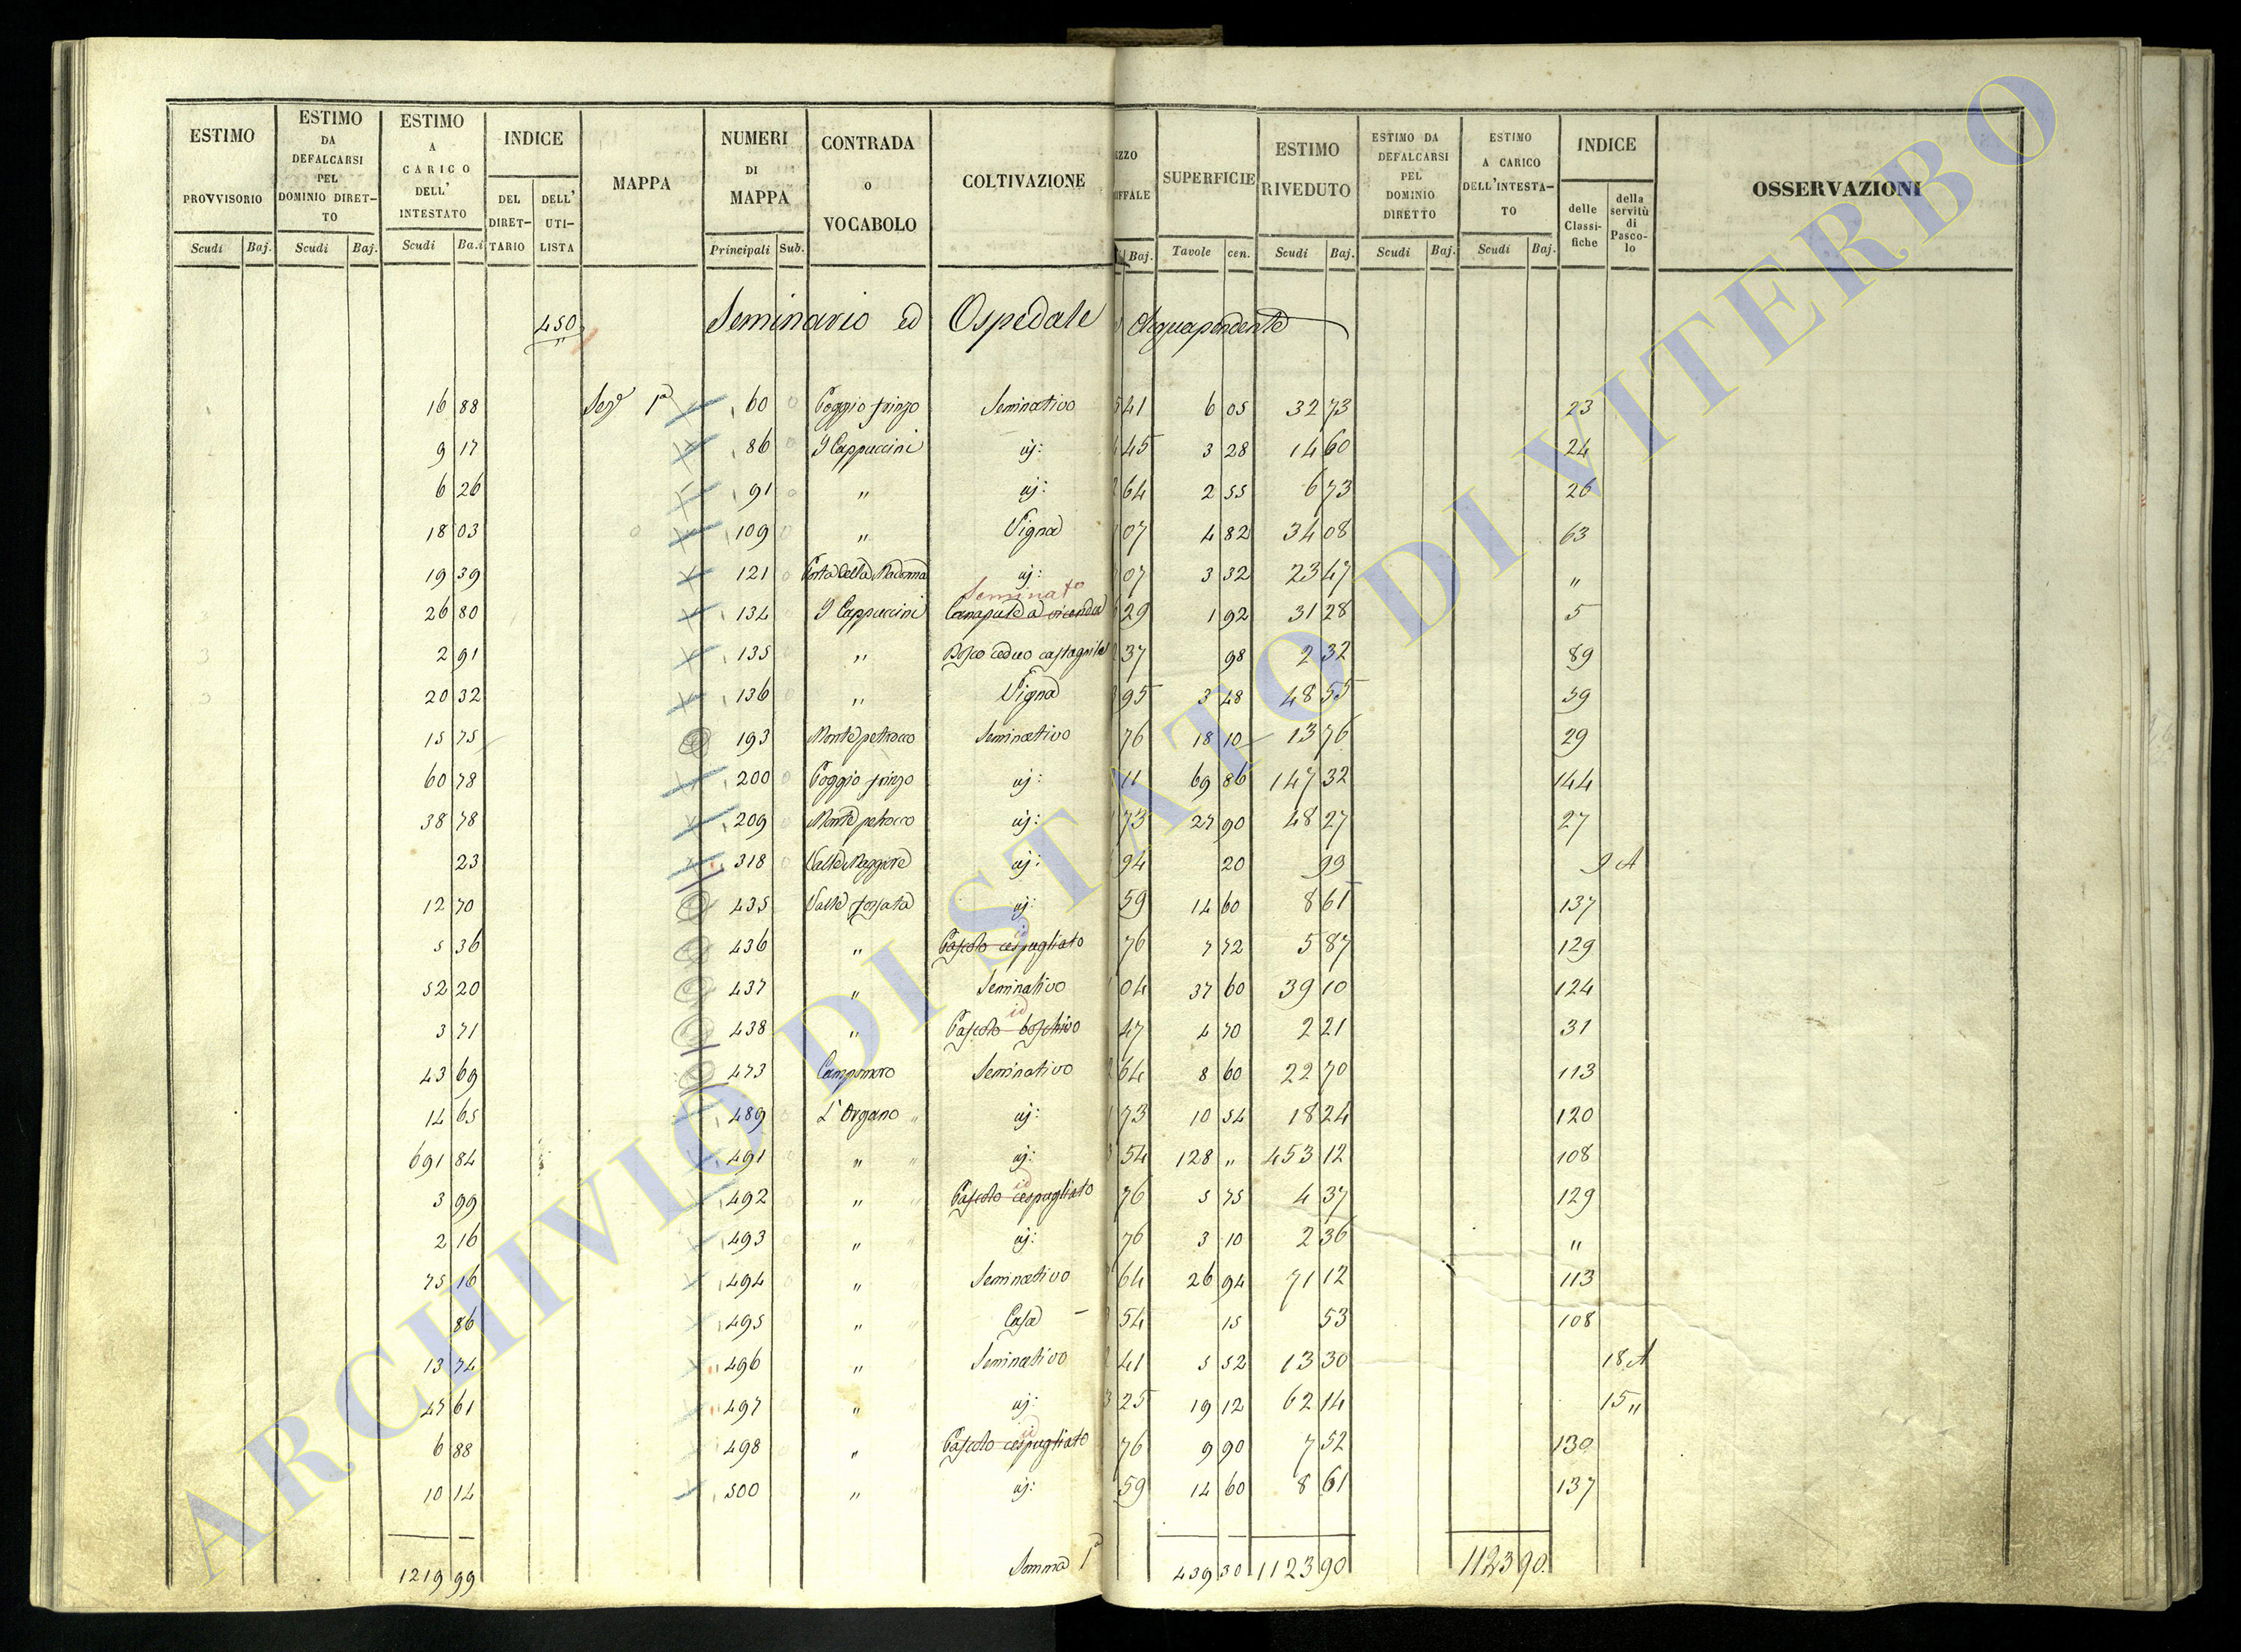 ESTIMO PROVVISORIO Scudi Baj. ESTIMO DA DEFALCARSI PEL DOMINIO DIRETTO Scudi Baj. ESTIMO A CARICO DELL' INTESTATO Scudi Ba.i INDICE DEL DIRETTARIO DELL' UTILISTA MAPPA NUMERI DI MAPPA Principali Sub. CONTRADA O VOCABOLO COLTIVAZIONE Baj. SUPERFICIE Tavole cen. ESTIMO RIVEDUTO Scudi Baj. ESTIMO DA DEFALCARSI PEL DOMINIO DIRETTO Scudi Baj. ESTIMO A CARICO DELL'INTESTATO Scudi Baj. INDICE delle Classifiche della servitù di Pascolo OSSERVAZIONI
450 Seminario ed Ospedale Acquapendente
16 88 Sez.e 1a 60 Poggio Prinzo Seminativo 41 6 05 32 73 23
9 17 86 I Cappuccini id: 45 3 28 14 60 24
6 26 91 " id: 64 2 55 6 73 26
18 03 109 " Vigna 07 4 82 34 08 63
19 39 121 Porta della Madonna id: 07 3 32 23 47 "
Seminato
26 80 134 I Cappuccini Canapule a vicenda 29 1 92 31 28 5
2 91 135 " Bosco ceduo castagnile 37 98 2 32 89
20 32 136 " Vigna 95 3 48 48 55 59
15 75 193 Monte petrocco Seminativo 76 18 10 13 76 29
60 78 200 Poggio Prinzo id: 11 69 86 147 32 144
38 78 209 Monte petrocco id: 73 27 90 48 27 27
23 318 Valle Maggiore id: 94 20 99 9 A
12 70 435 Valle forsata id: 59 14 60 8 61 137
5 36 436 " Pascolo cespugliato 76 7 72 5 87 129
52 20 437 " Seminativo 04 37 60 39 10 124
id
3 71 438 " Pascolo boschivo 47 4 70 2 21 31
43 69 473 Campomoro Seminativo 64 8 60 22 70 113
14 65 489 L'Organo id: 73 10 54 18 24 120
691 84 491 " id: 54 128 " 453 12 108
id
3 99 492 " Pascolo cespugliato 76 5 75 4 37 129
2 16 493 " id: 76 3 10 2 36 "
75 16 494 " Seminativo 64 26 94 71 12 113
86 495 " Casa 54 15 53 108
13 74 496 " Seminativo 41 5 52 13 30 18 A
47 61 497 " id: 25 19 12 62 14 15 "
id
6 88 498 " Pascolo cespugliato 76 9 90 7 52 130
10 14 500 " id: 59 14 60 8 61 137
1219 99 Somma 1a 439 30 1123 90 1123 90
ARCHIVIO DI STATO DI VITERBO